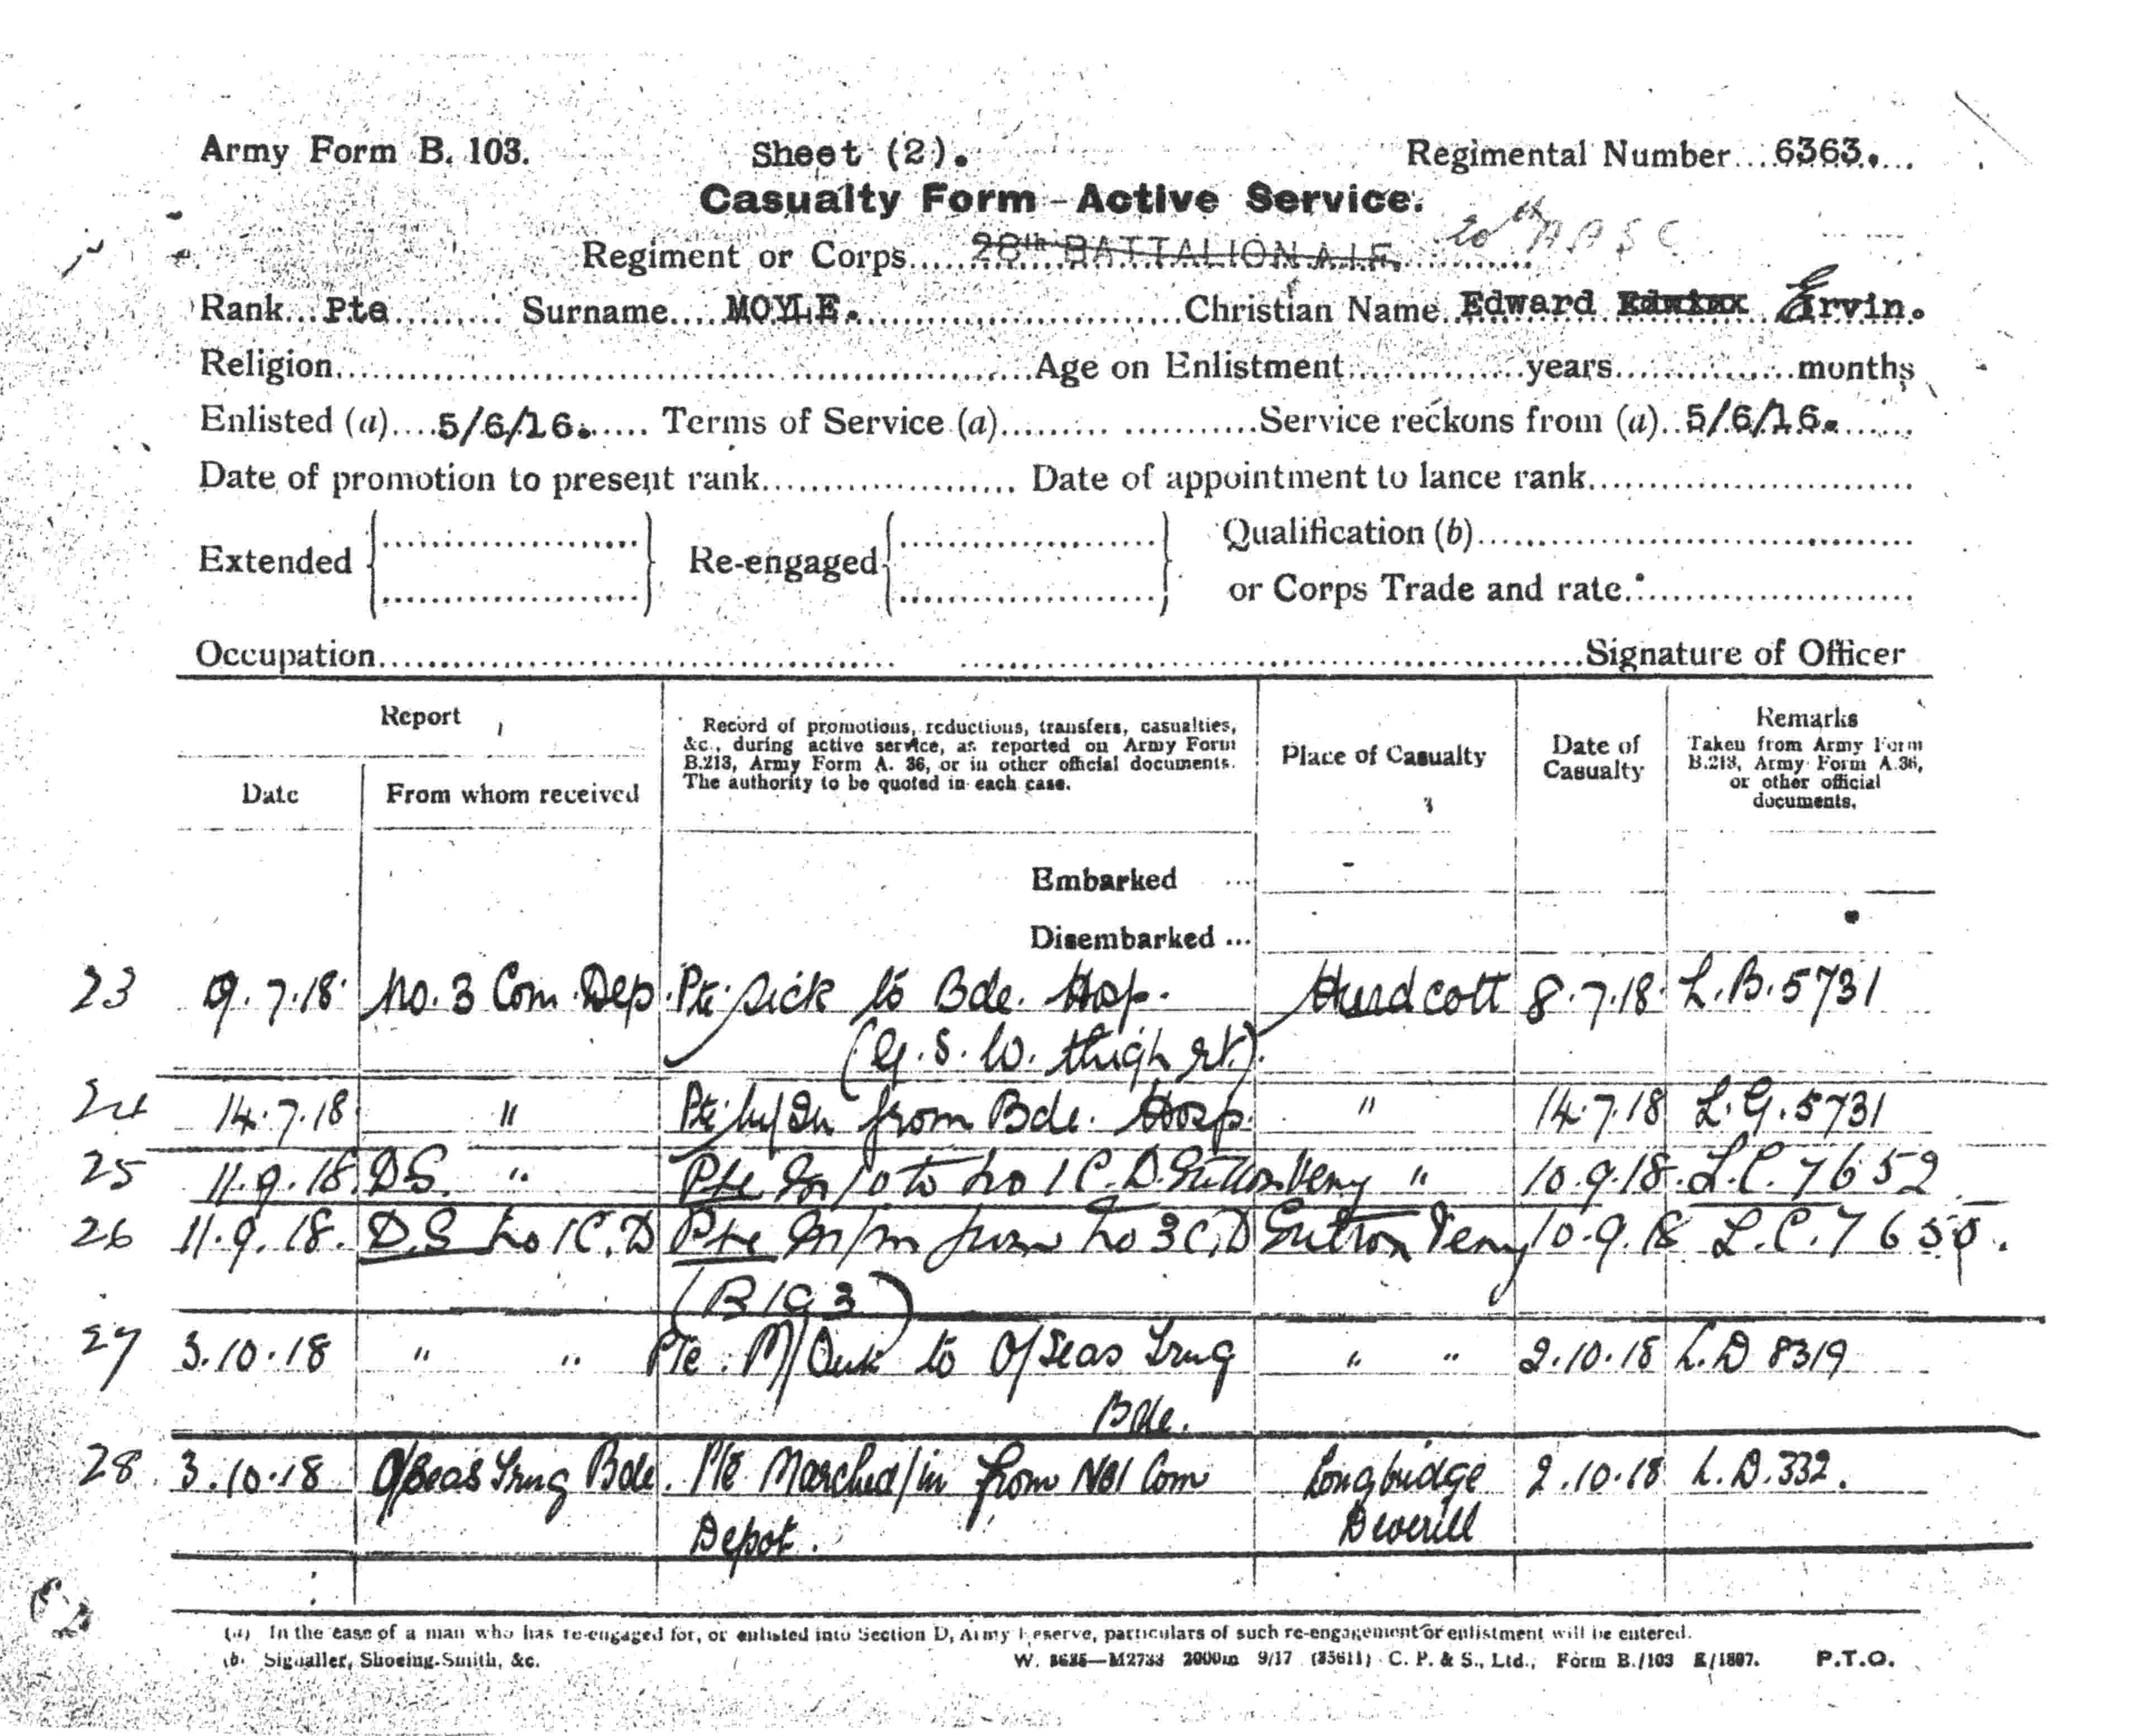 Army Form B. 103. Sheet (2). Regimental Number...6363....
Casualty Form - Active Service.
Regiment or Corps.....28th BATTALION A.I.F.
Rank...Pte......... Surname....MOYLE...........................Christian Name. Edward Ervin.
Religion.......................................................Age on Enlistment...............years...............months
Enlisted (a)....5/6/16...... Terms of Service (a)......... ............Service reckons from (a)..5/6/16.......
Date of promotion to present rank...................... Date of appointment to lance rank............................
Extended Re-engaged Qualification (b)......................................
or Corps Trade and rate.........................
Occupation............................................. ......................................................Signature of Officer
Report
Date
From whom received
Record of promotions, reductions, transfers, casualties,
&c., during active service, as reported on Army Form
B.213, Army Form A. 36, or in other official documents.
The authority to be quoted in each case.
Place of Casualty
Date of
Casualty
Remarks
Taken from Army Form
B.213, Army Form A.36,
or other official
documents.
Embarked ...
Disembarked ...
23 9.7.18. No. 3 Com. Dep. Pte. Sick to Bde. Hosp. Hurdcott 8.7.18. L.B.5731
(G.S.W. thigh rt).
24 14.7.18 " Pte. from Bde. Hosp. " 14.7.18 L.G.5731
25 11.9.18. D.S. " Pte M/O to No 1 C.D. Sutton Veny " 10.9.18. L.C.7652
26 11.9.18. D.S No 1 C.D Pte M/in from No 3 C.D Sutton Veny 10.9.18 L.C.
(B 1 a 3)
27 3.10.18 " " Pte. M/Out to O/Seas Trng " " 2.10.18 L.D 8319
Bde.
28. 3.10.18 O/Seas Trng Bde. Pte Marched/in from No1 Com Longbridge 2.10.18 L.D.332.
Depot. Deverill
(a) In the case of a man who has re-engaged for, or enlisted into Section D, Army Reserve, particulars of such re-engagement or enlistment will be entered.
(b. Signaller, Shoeing-Smith, &c. W. 8625—M2733 2000m 9/17 (35611) C. P. & S., Ltd., Form B./103 E/1807. P.T.O.